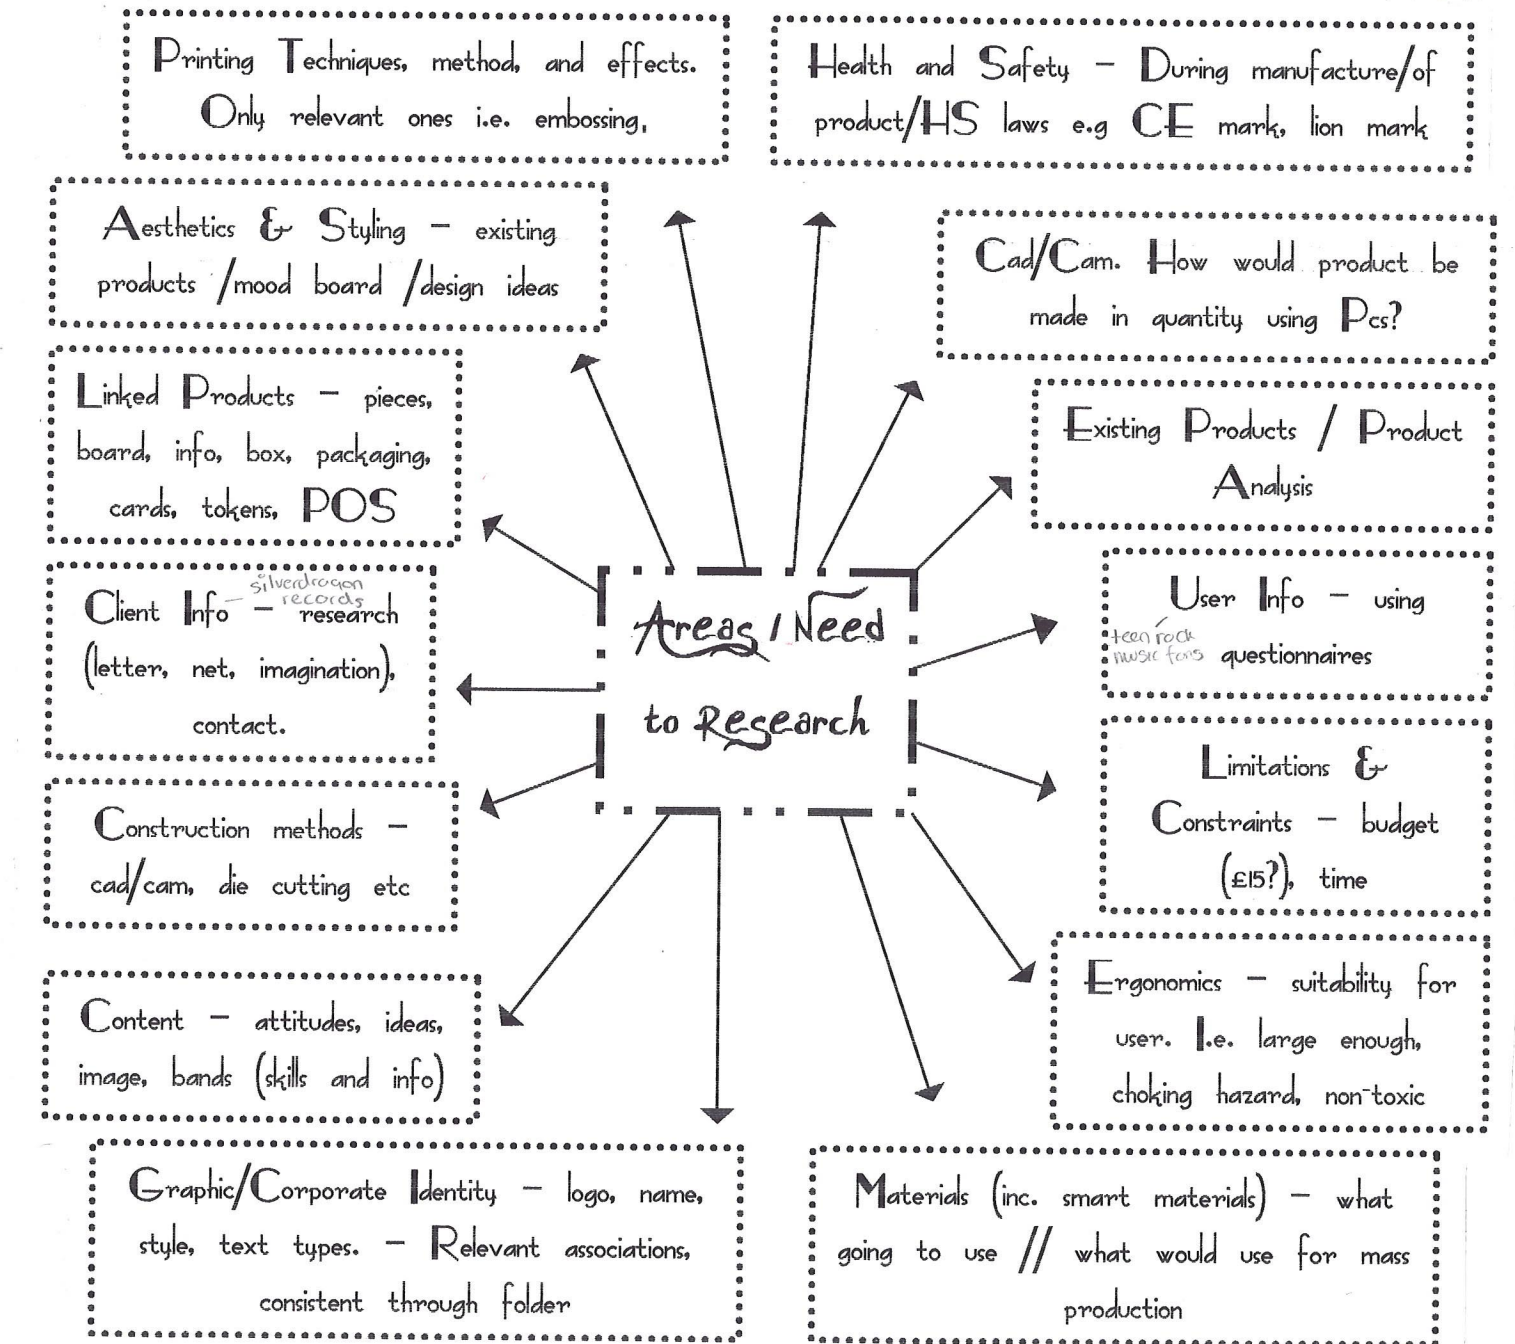 Printing Techniques, method, and effects.
Only relevant ones i.e. embossing,
Health and Safety – During manufacture/of
product/HS laws e.g CE mark, lion mark
Aesthetics & Styling – existing
products /mood board /design ideas
Cad/Cam. How would product be
made in quantity using Pcs?
Linked Products – pieces,
board, info, box, packaging,
cards, tokens, POS
Existing Products / Product
Analysis
silverdragon
records
Client Info – research
(letter, net, imagination),
contact.
Areas I Need
to Research
User Info – using
teen rock
music fans
questionnaires
Limitations &
Constraints – budget
(£15?), time
Construction methods –
cad/cam, die cutting etc
Ergonomics – suitability for
user. I.e. large enough,
choking hazard, non-toxic
Content – attitudes, ideas,
image, bands (skills and info)
Graphic/Corporate Identity – logo, name,
style, text types. – Relevant associations,
consistent through folder
Materials (inc. smart materials) – what
going to use // what would use for mass
production